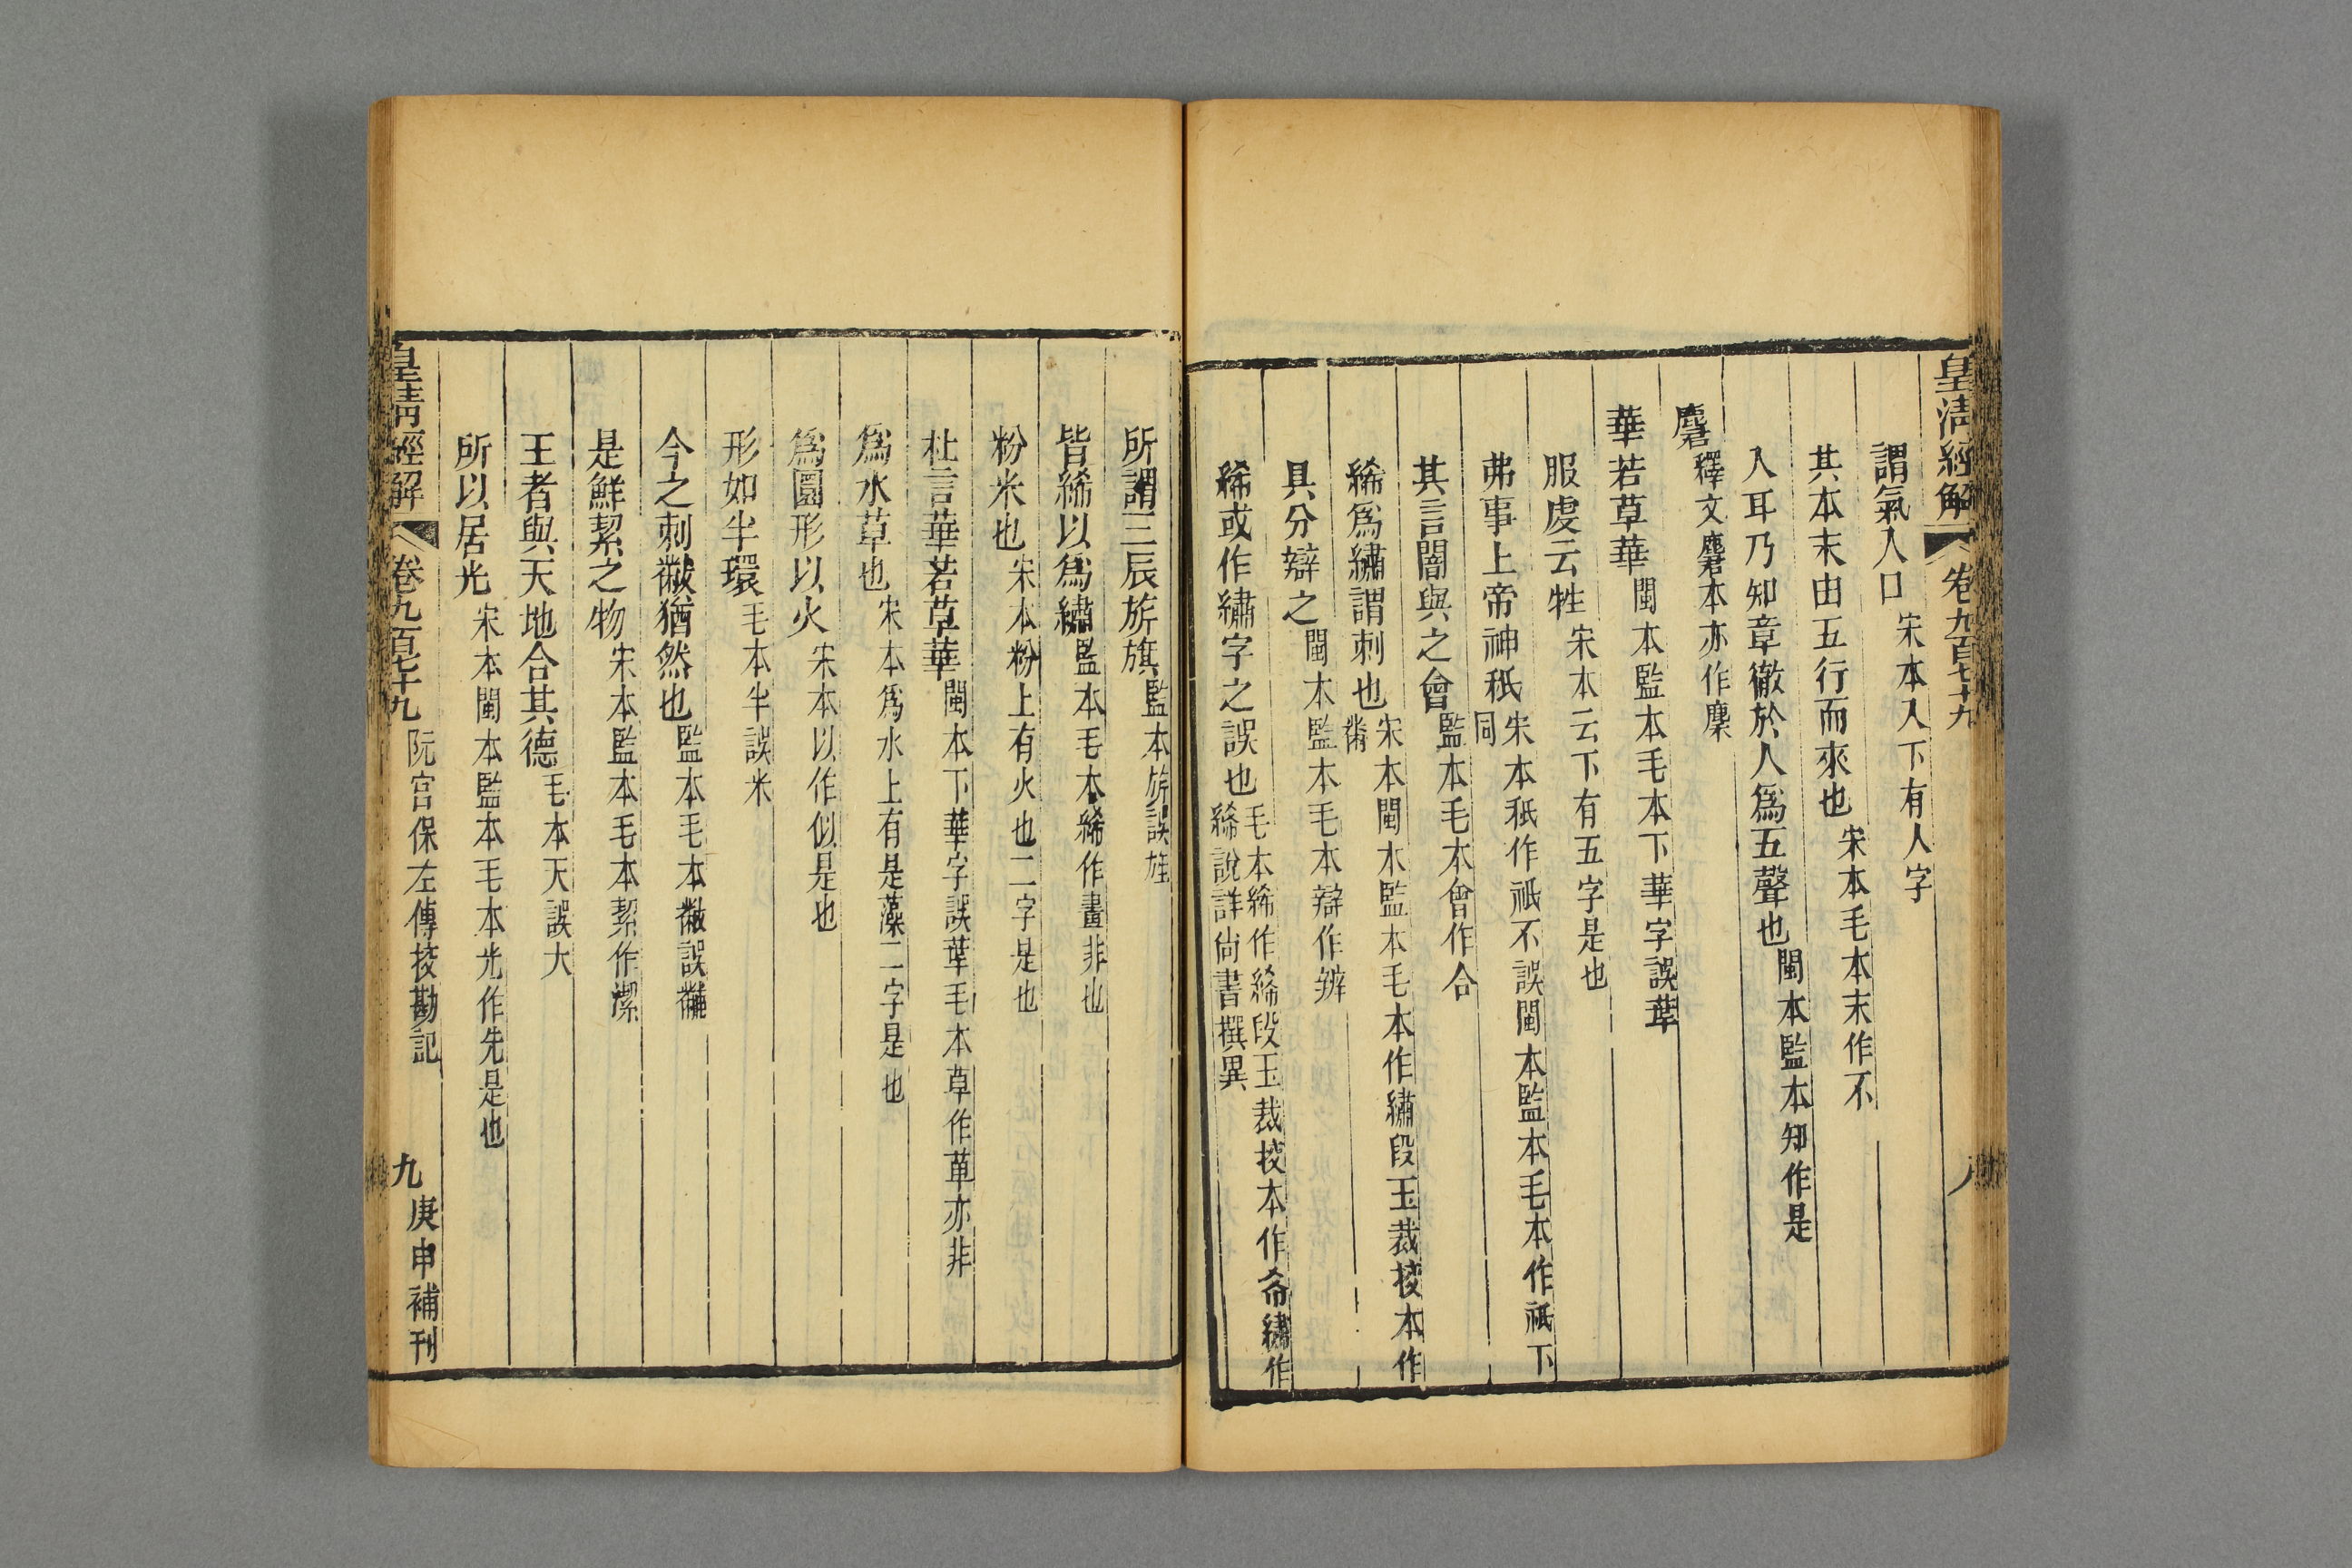 皇清經解 卷九百七十九 八
謂氣入口宋本入下有人字
其本末由五行而來也宋本毛本末作不
入耳乃知章徹於人爲五聲也閩本監本知作是
麏釋文麏本亦作麇
華若草華閩本監本毛本下華字誤葉
服虔云牲宋本云下有五字是也
弗事上帝神秖宋本秖作祇不誤閩本監本毛本作祗下同
其言闇與之會監本毛本會作合
絺爲繡謂刺也宋本閩本監本毛本作繡段玉裁挍本作黹
具分辯之閩本監本毛本辯作辨
絺或作繡字之誤也毛本絺作絺段玉裁挍本作希繡作絺說詳尚書撰異
所謂三辰旂旗監本旂誤旌
皆絺以爲繡監本毛本絺作畫非也
粉米也宋本粉上有火也二字是也
杜言華若草華閩本下華字誤葉毛本草作草亦非
爲水草也宋本爲水上有是藻二字是也
爲圜形以火宋本以作似是也
形如半環毛本半誤米
今之刺黻猶然也監本毛本黻誤黼
是鮮絜之物宋本監本毛本絜作潔
王者與天地合其德毛本天誤大
所以居光宋本閩本監本毛本光作先是也
皇清經解 卷九百七十九 阮宮保左傳挍勘記 九 庚申補刊